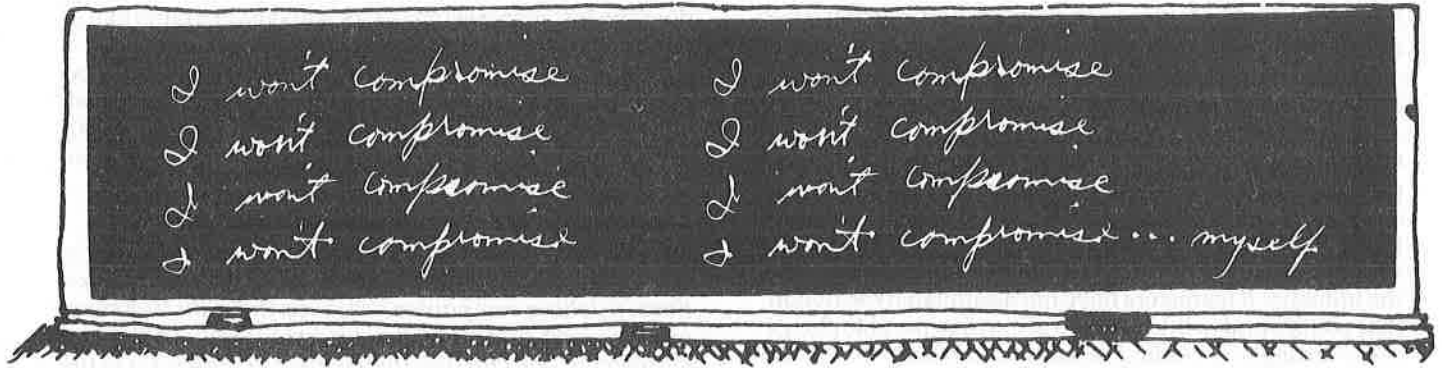 I won't compromise
I won't compromise
I won't compromise
I won't compromise
I won't compromise
I won't compromise
I won't compromise
I won't compromise... myself